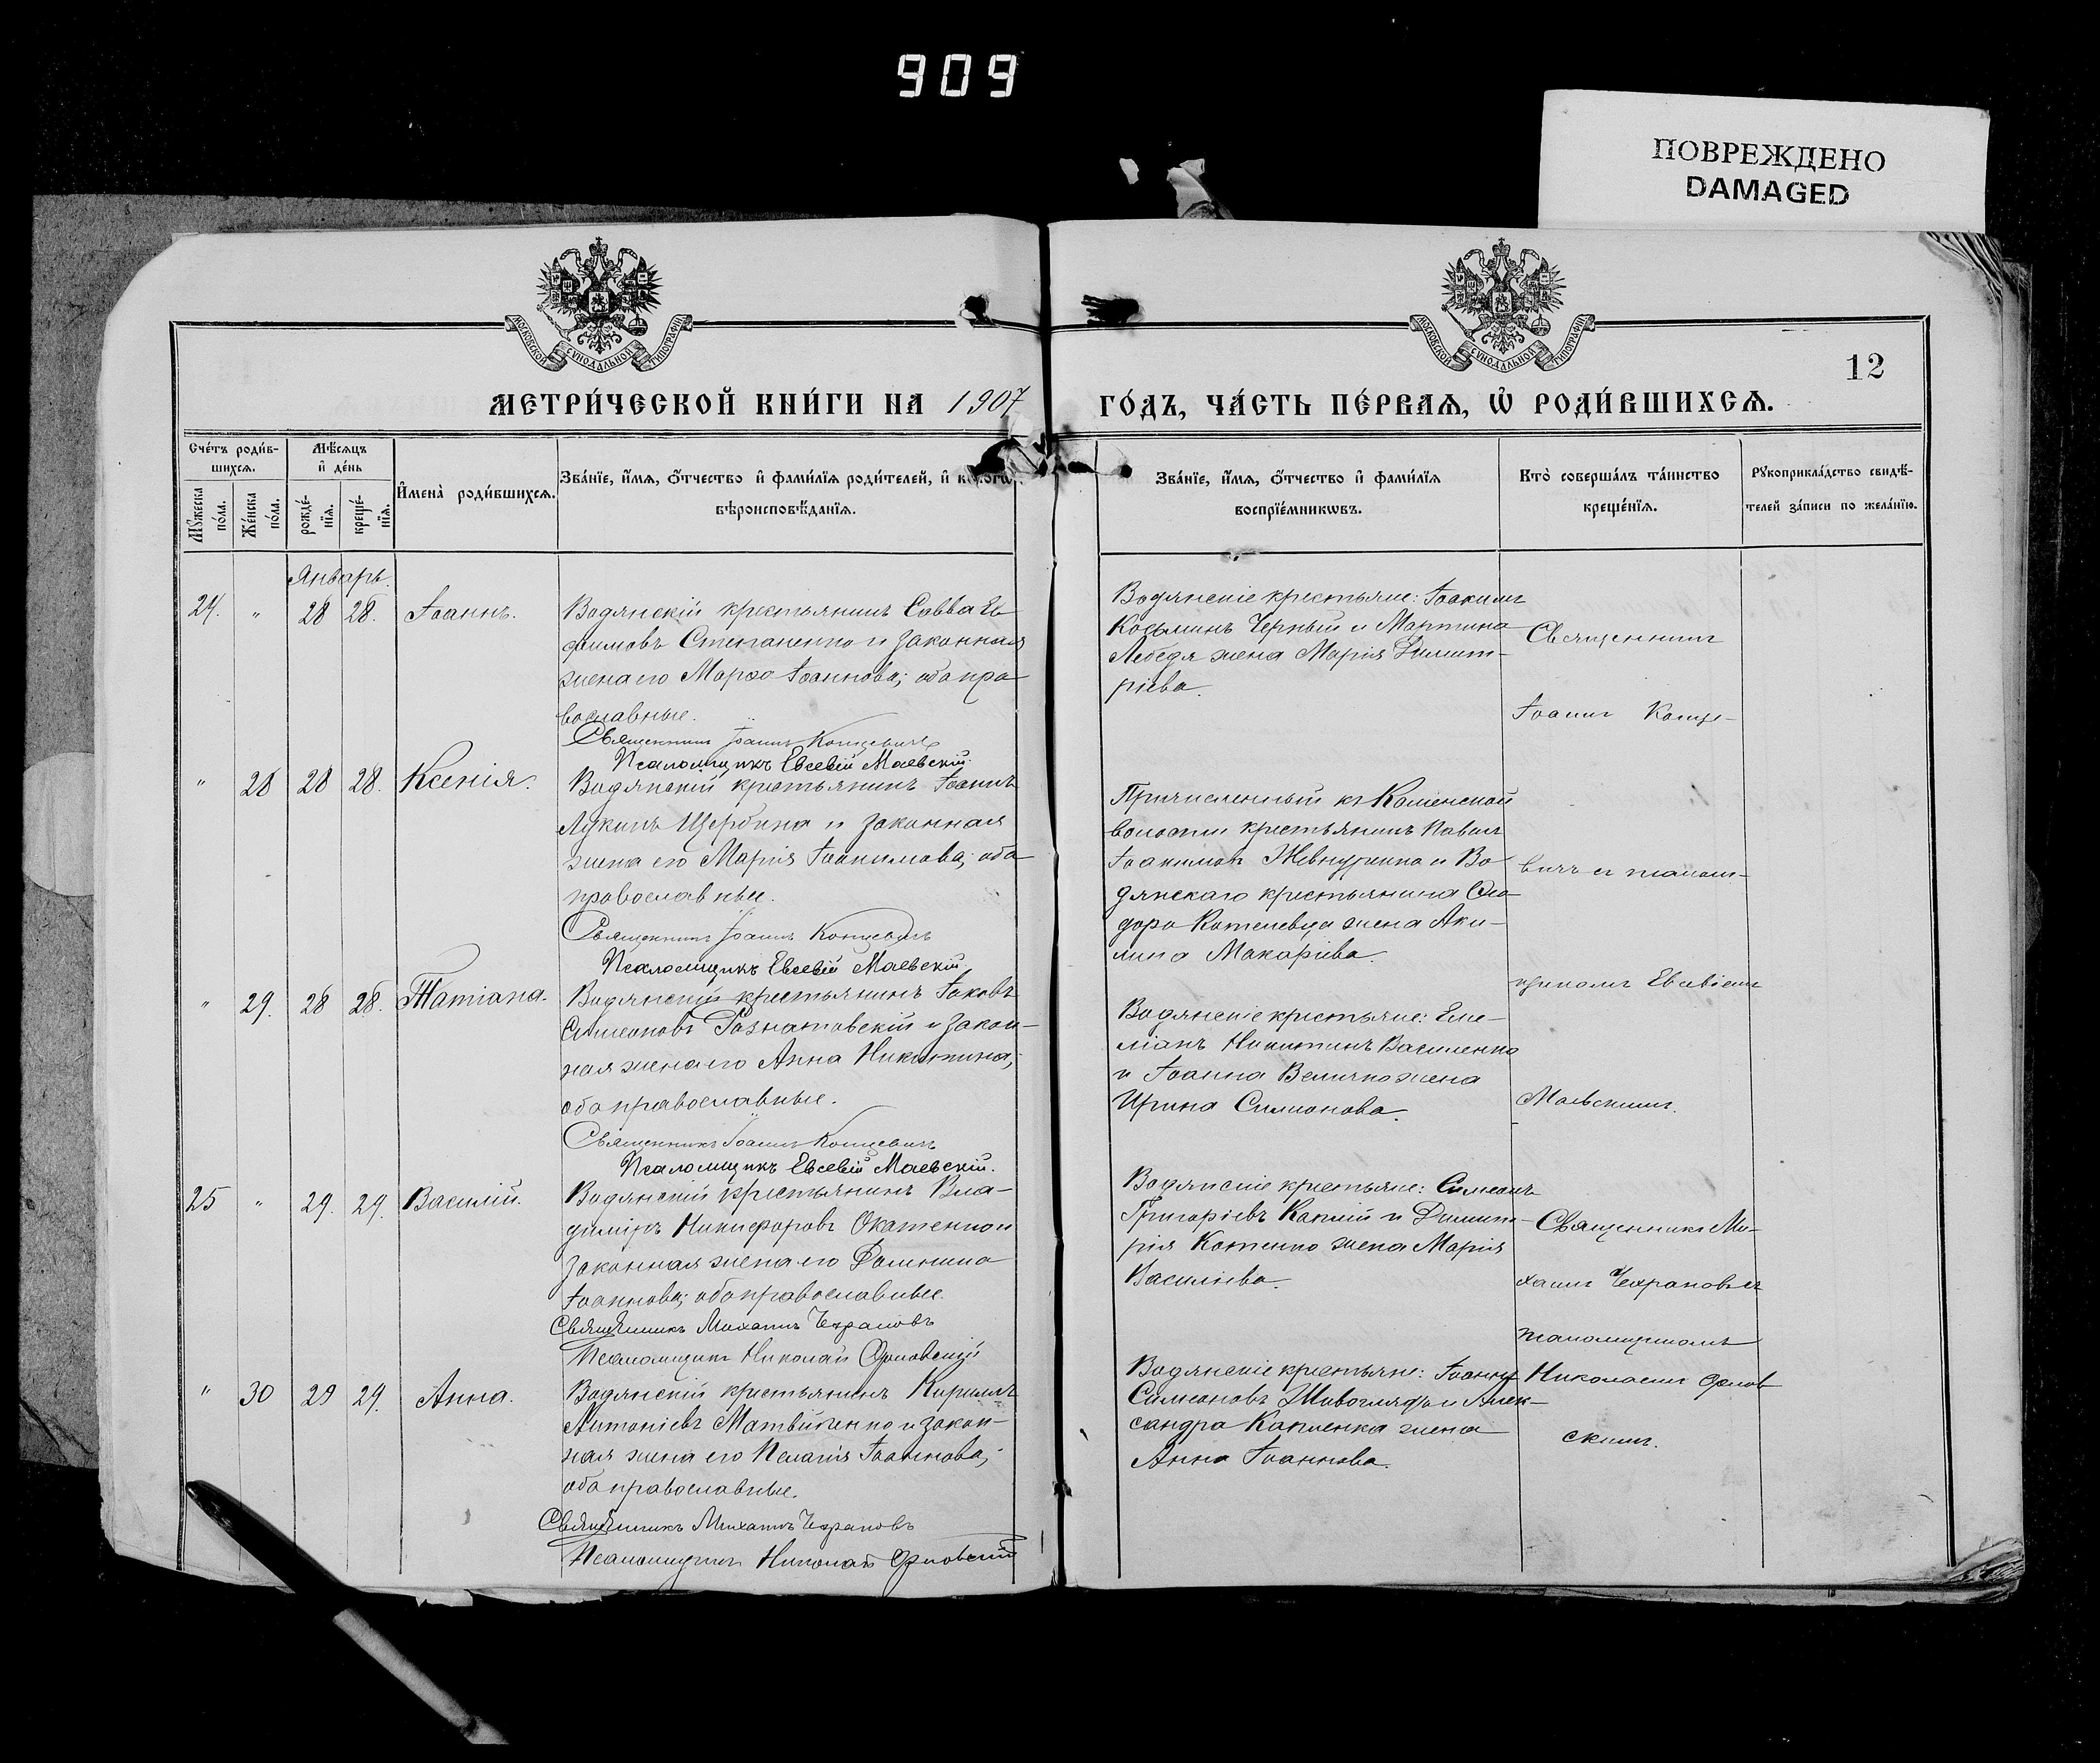 909
ПОВРЕЖДЕНО
DAMAGED
МОСКОВСКОЙ СѴНОДАЛЬНОЙ ТИПОГРАФІИ
МОСКОВСКОЙ СѴНОДАЛЬНОЙ ТИПОГРАФІИ
12
МЕТРИ́ЧЕСКОЙ КНИ́ГИ НА 1907
ГО́ДЪ, ЧА́СТЬ ПЕ́РВАѦ, Ѡ҆ РОДИ́ВШИХСѦ.
Сче́тъ роди́в-
шихсѧ.
Мꙋ́жеска по́ла.
Же́нска по́ла.
Мѣ́сѧцъ
и҆ де́нь
рожде́-
нїѧ.
креще́-
нїѧ.
И҆мена̀ роди́вшихсѧ.
Зва́нїе, и҆́мѧ, ѻ҆́тчество и҆ фами́лїѧ роди́телей, и҆ како́гѡ
вѣроисповѣ́данїѧ.
Зва́нїе, и҆́мѧ, ѻ҆́тчество и҆ фами́лїѧ
воспрїе́мникѡвъ.
Кто̀ соверша́лъ та́инство
креще́нїѧ.
Рꙋкоприкла́дство свидѣ́-
телей за́писи по жела́нїю.
Январь.
24. " 28 28. Іоаннъ.
Водянскій крестьянинъ Савва Ев
фимовъ Степаненко и законная
жена его Марѳа Іоаннова; оба пра
вославные.
Священникъ Іоаннъ Концевичъ
Псаломщикъ Евсевій Маевскій.
Водянскіе крестьяне: Іоакимъ
Косьминъ Черный и Мартина
Лебедя жена Марія Димит-
ріева.
Священникъ
Іоаннъ Конце-
" 28 28 28. Ксенія.
Водянскій крестьянинъ Іоаннъ
Лукинъ Щербина и законная
жена его Марія Іоакимова; оба
православные.
Священникъ Іоаннъ Концевичъ
Псаломщикъ Евсевій Маевскій.
Причисленный къ Каменской
волости крестьянинъ Павелъ
Іоакимовъ и Во
дянскаго крестьянина Ѳео
дора Котелевца жена Аки-
лина Макаріева.
вичъ съ псалом-
щикомъ Евсевіемъ
" 29. 28 28. Татіана.
Водянскій крестьянинъ Іаковъ
Симеоновъ Рознатовскій и закон-
ная жена его Анна Никитина;
оба православные.
Священникъ Іоаннъ Концевичъ
Псаломщикъ Евсевій Маевскій.
Водянскіе крестьяне: Еме-
ліанъ Никитинъ Василенко
и Іоанна Величко жена
Ирина Симонова.
Маевскимъ.
25 " 29. 29. Василій.
Водянскій крестьянинъ Вла-
диміръ Никифоровъ Окатенко и
законная жена его Домнина
Іоаннова; оба православные.
Священникъ Михаилъ Чехрановъ
Псаломщикъ Николай Орловскій
Водянскіе крестьяне: Симеонъ
Григоріевъ Каплій и Димит-
рія Котенко жена Марія
Василіева.
Священникъ Ми-
хаилъ Чехрановъ съ
псаломщикомъ
" 30 29 29. Анна.
Водянскій крестьянинъ Кириллъ
Антоніевъ Матвѣенко и закон-
ная жена его Пелагія Іоаннова;
оба православные.
Священникъ Михаилъ Чехрановъ
Псаломщикъ Николай Орловскій
Водянскіе крестьяне: Іоаннъ
Симеоновъ Живоглядъ и Алек-
сандра Капленка жена
Анна Іоаннова.
Николаемъ Орлов
скимъ.